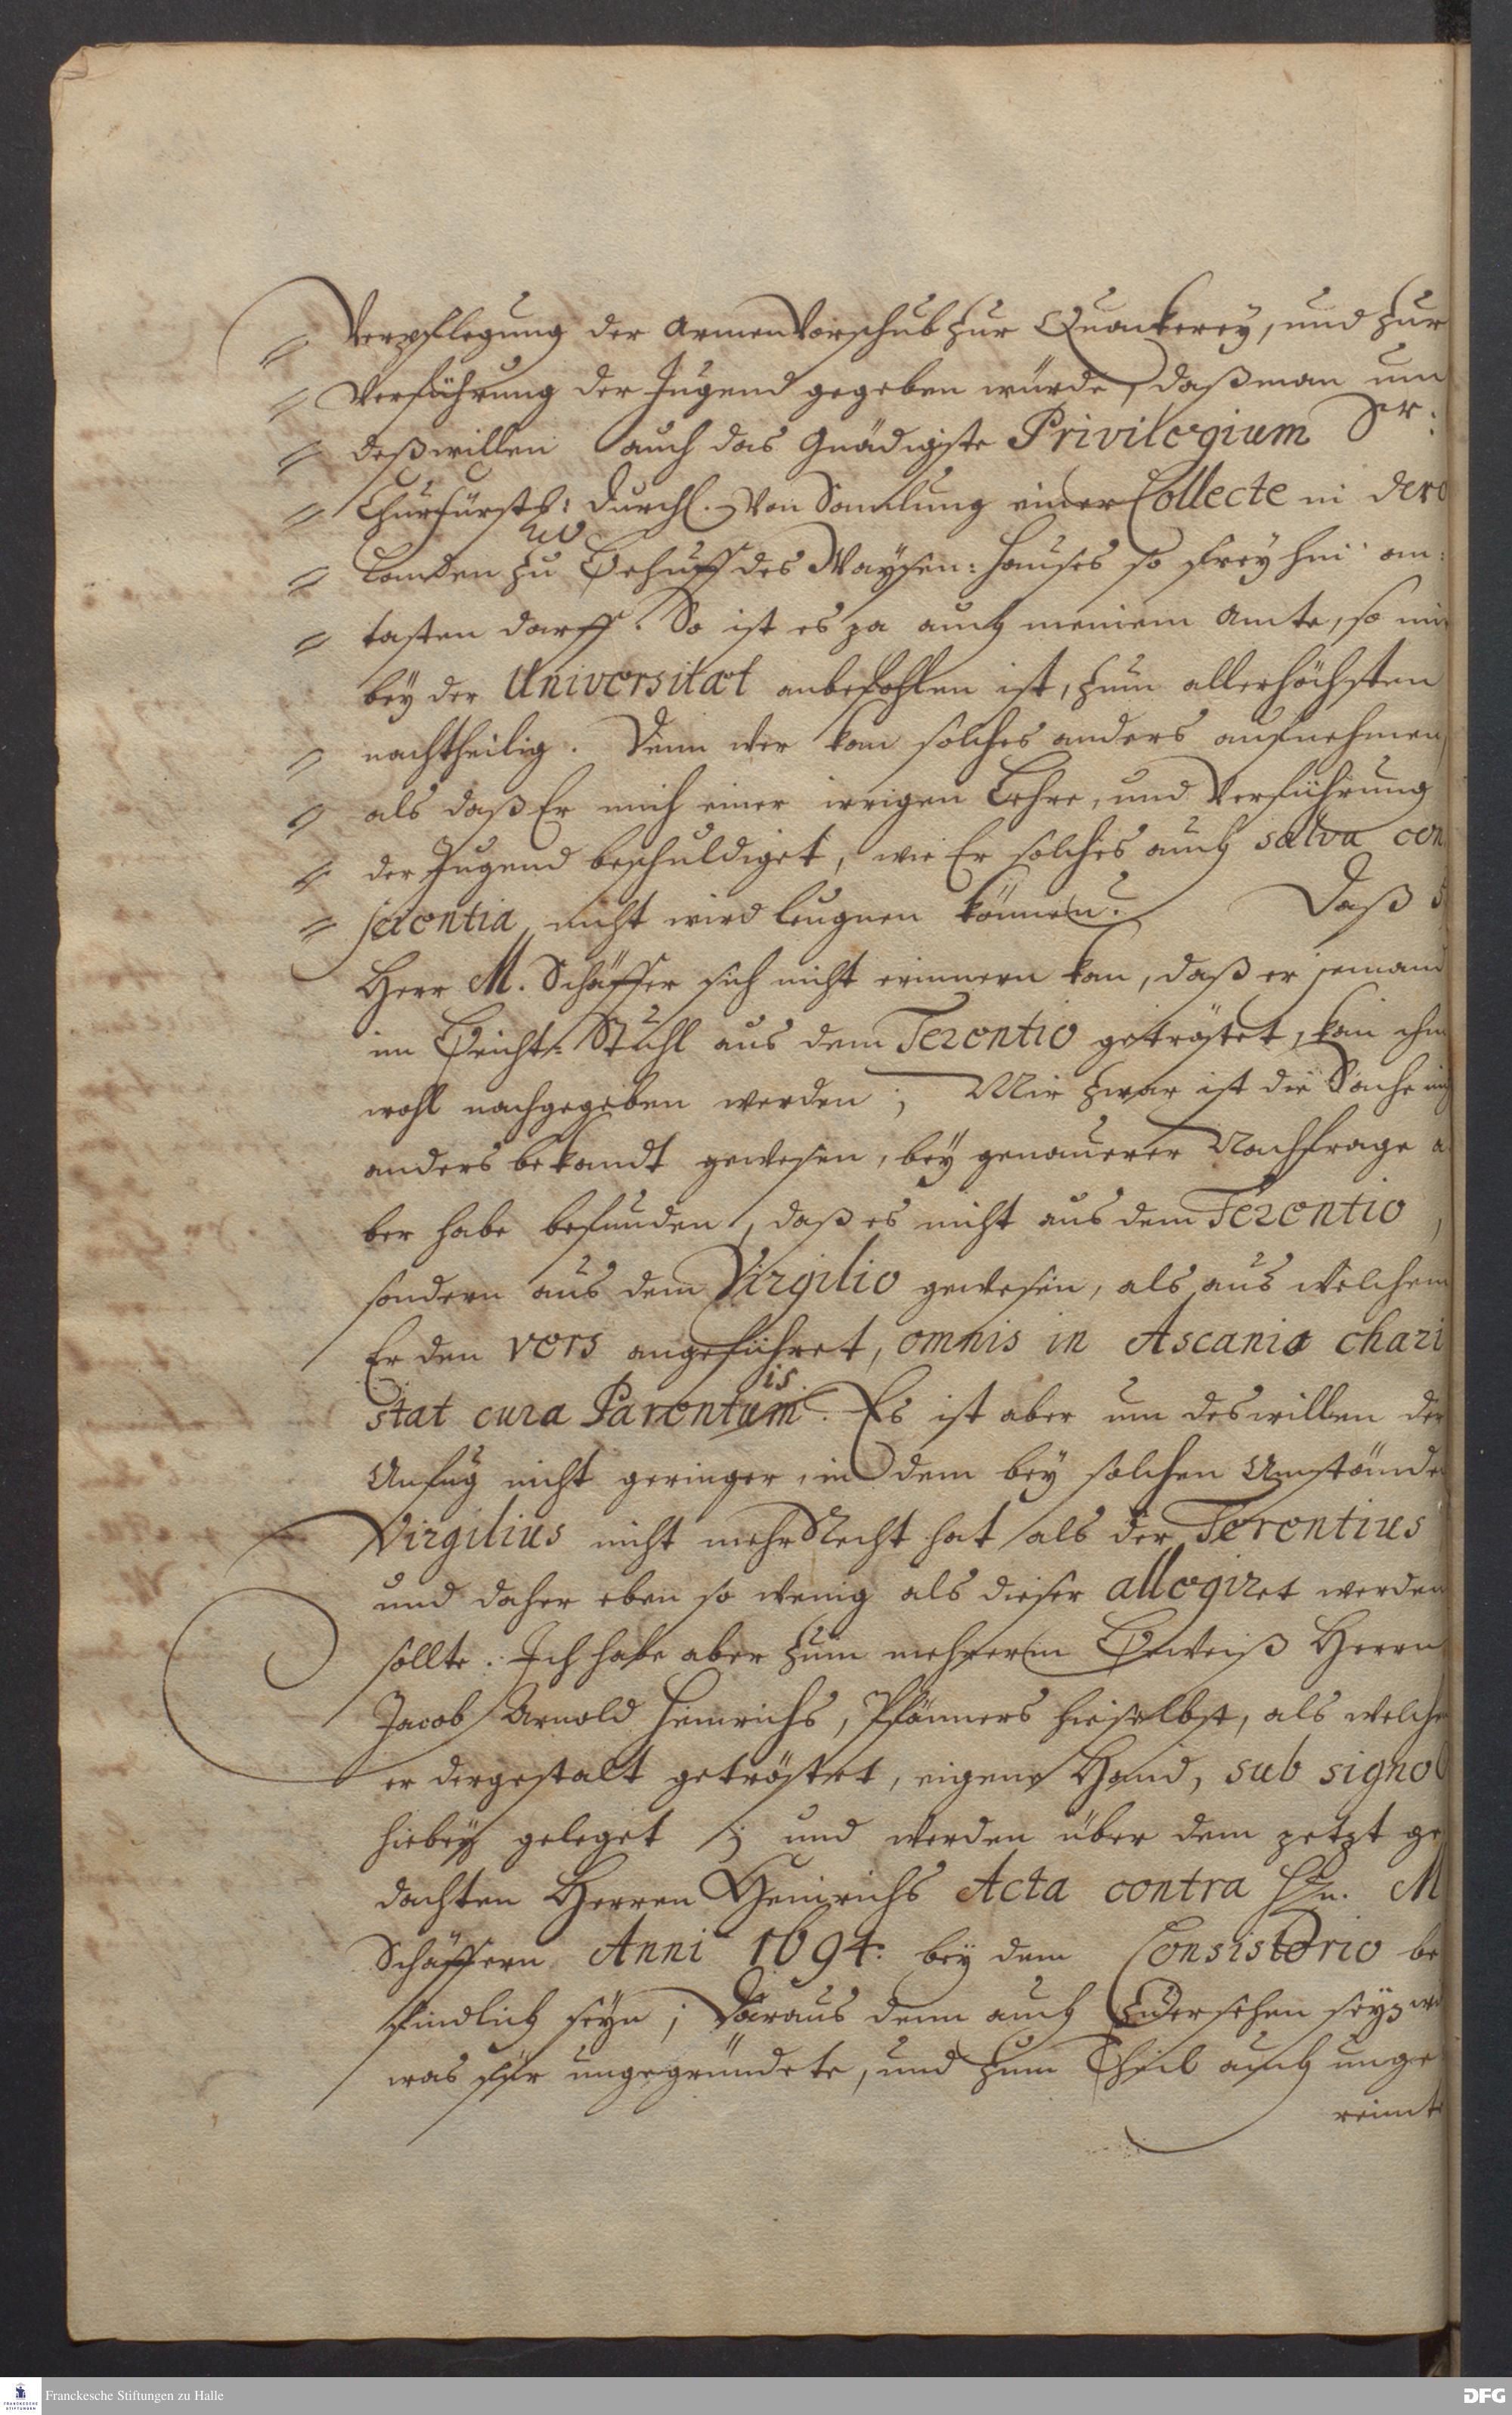 Verpflegung der Armen Vorschub zur Quackerey, und zur
Verführung der Jugend gegeben würde, daß man um
deßwillen auch das Gnädigste Privilegium Sr:
Churfürstl: Durchl. von Samlung einer Collecte in dero
Landen zu Behuff des Waysen-Hauses so frey hin an-
tasten darff. So ist es ja auch meinem Amte, so mir
bey der Universitæt anbefohlen ist, zum allerhöchsten
nachtheilig. Denn wer kan solches anders aufnehmen,
als daß Er mich einer irrigen Lehre, und Verführung
der Jugend beschuldiget, wie Er solches auch salva con
scientia nicht wird leugnen können. Daß
Herr M. Schäffer sich nicht erinnern kan, daß er jemand
im Beicht-Stuhl aus dem Terentio getröstet, kan ihm
wohl nachgegeben werden; Mir zwar ist die Sache
anders bekandt gewesen, bey genauerer Nachfrage a
ber habe befunden, daß es nicht aus dem Terentio,
sondern aus dem Virgilio gewesen, als aus welchem
Er den vers angeführet, omnis in Ascanio chari
stat cura Parentum is. Es ist aber um deswillen der
Unfug nicht geringer, in dem bey solchen Umstände
Virgilius nicht mehr Recht hat als der Terentius
und daher eben so wenig als dieser allegiret werden
sollte. Ich habe aber zum mehrern Beweiß Herrn
Jacob Arnold Heinrichs, Pfänners hieselbst, als welche
er dergestalt getröstet, eigene Hand, sub signo
hiebey geleget; und werden über dem jetzt ge
dachten Herren Heinrichs Acta contra Hn. M
Schäffern Anni 1694. bey dem Consistorio be
findlich seyn; Daraus denn auch zu ersehen seyn
was für ungegründete, und zum Theil auch unge
reimte
Franckesche Stiftungen zu Halle
DFG